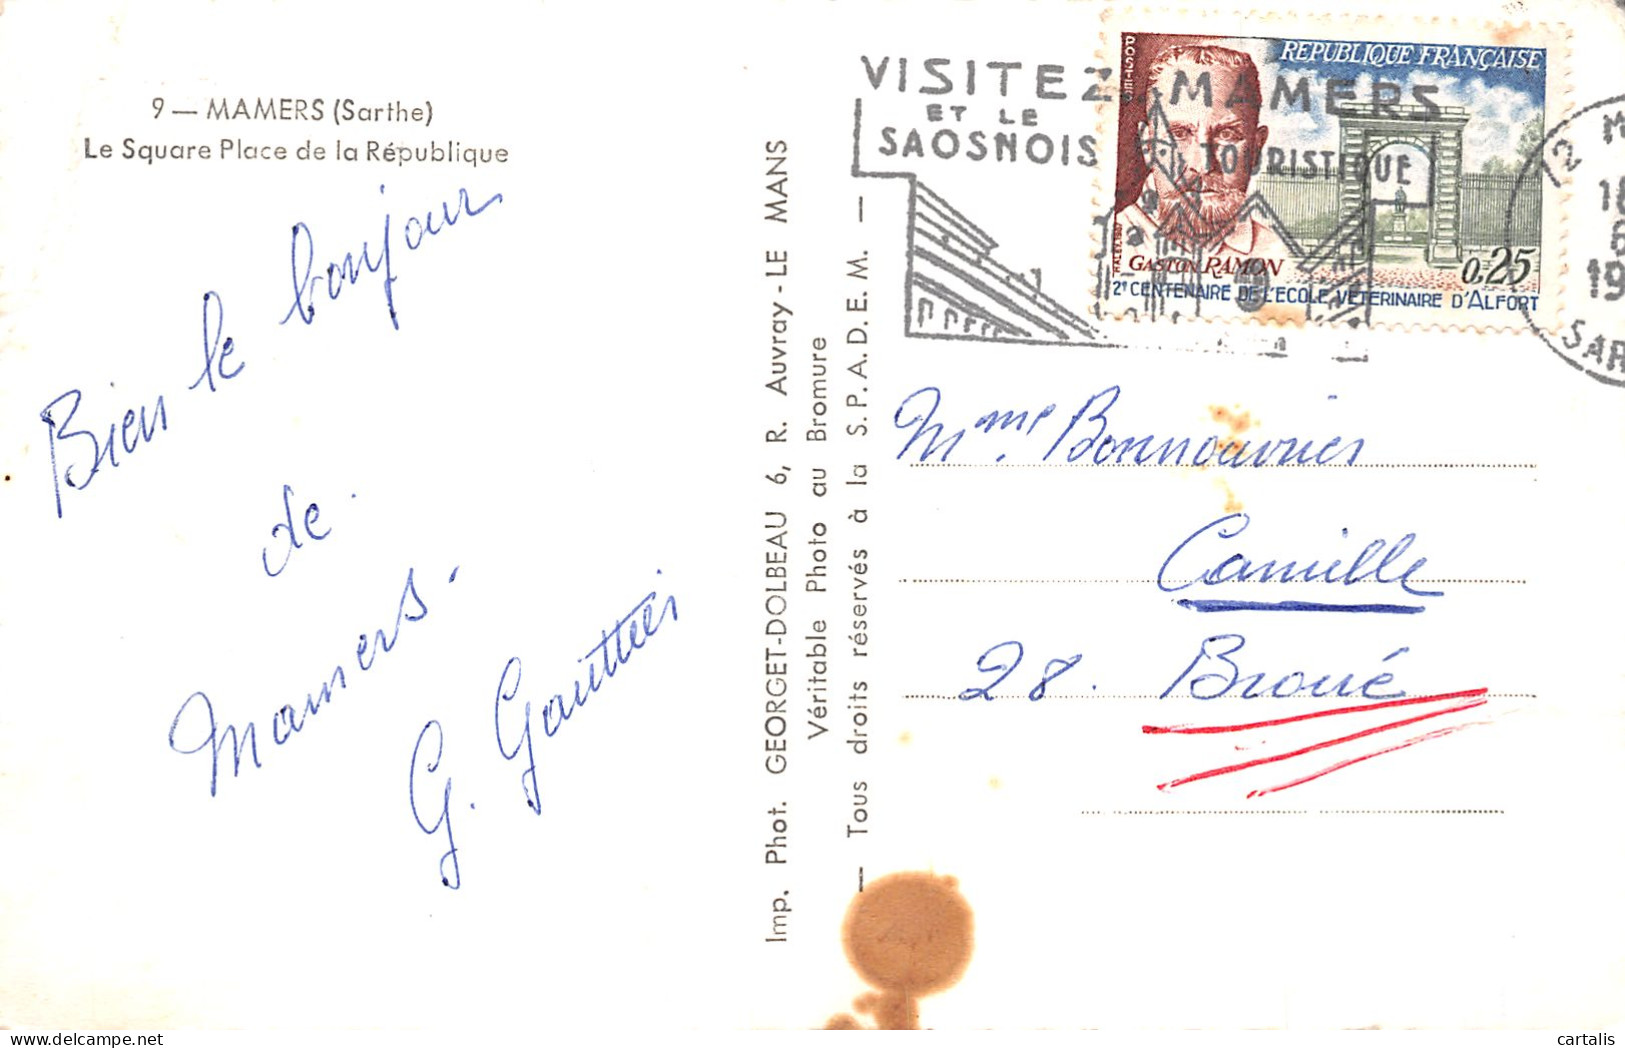 9 — MAMERS (Sarthe)
Le Square Place de la République
Bien le bonjour
de
Mamers.
G. Gauttier
Imp. Phot. GEORGET-DOLBEAU 6, R. Auvray - LE MANS
Véritable Photo au Bromure
— Tous droits réservés à la S.P.A.D.E.M. —
VISITEZ MAMERS
ET LE
SAOSNOIS TOURISTIQUE
POSTES
RÉPUBLIQUE FRANÇAISE
GASTON RAMON
0,25
2e CENTENAIRE DE L'ECOLE VÉTÉRINAIRE D'ALFORT
Mme Bonnouvrier
Camille
28. Broué
cartalis